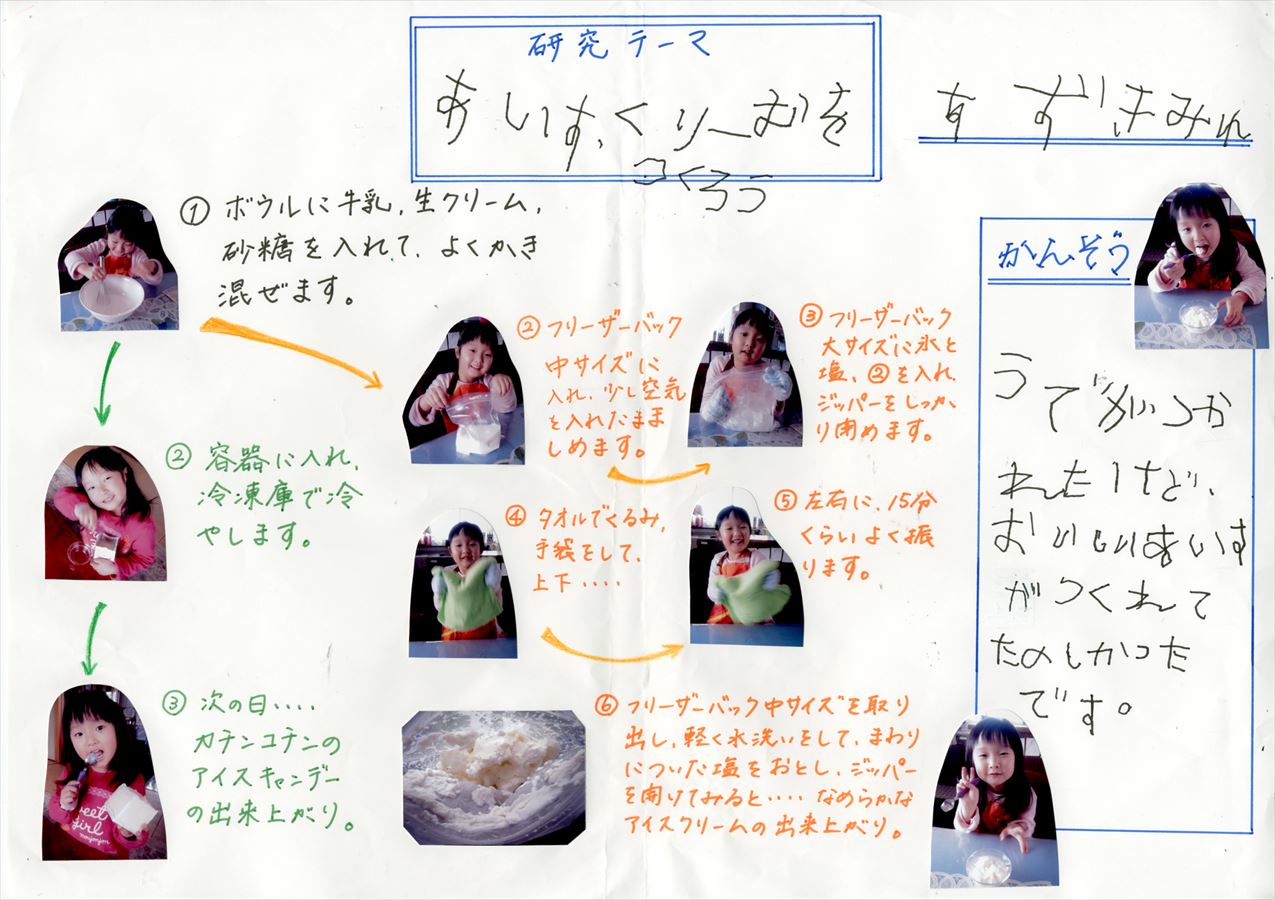 研究テーマ
あいすくりーむを
つくろう
すずきみれ
① ボウルに牛乳、生クリーム、
砂糖を入れて、よくかき
混ぜます。
② 容器に入れ、
冷凍庫で冷
やします。
③ 次の日‥‥
カチンコチンの
アイスキャンデー
の出来上がり。
② フリーザーバック
中サイズに
入れ、少し空気
を入れたまま
しめます。
③ フリーザーバック
大サイズに氷と
塩、②を入れ、
ジッパーをしっか
り閉めます。
④ タオルでくるみ、
手袋をして、
上下‥‥
⑤ 左右に、15分
くらいよく振
ります。
⑥ フリーザーバック中サイズを取り
出し、軽く水洗いをして、まわり
についた塩をおとし、ジッパー
を開けてみると‥‥なめらかな
アイスクリームの出来上がり。
かんそう
うでがつか
れたけど、
おいしいあいす
がつくれて
たのしかった
です。
sweet
girl